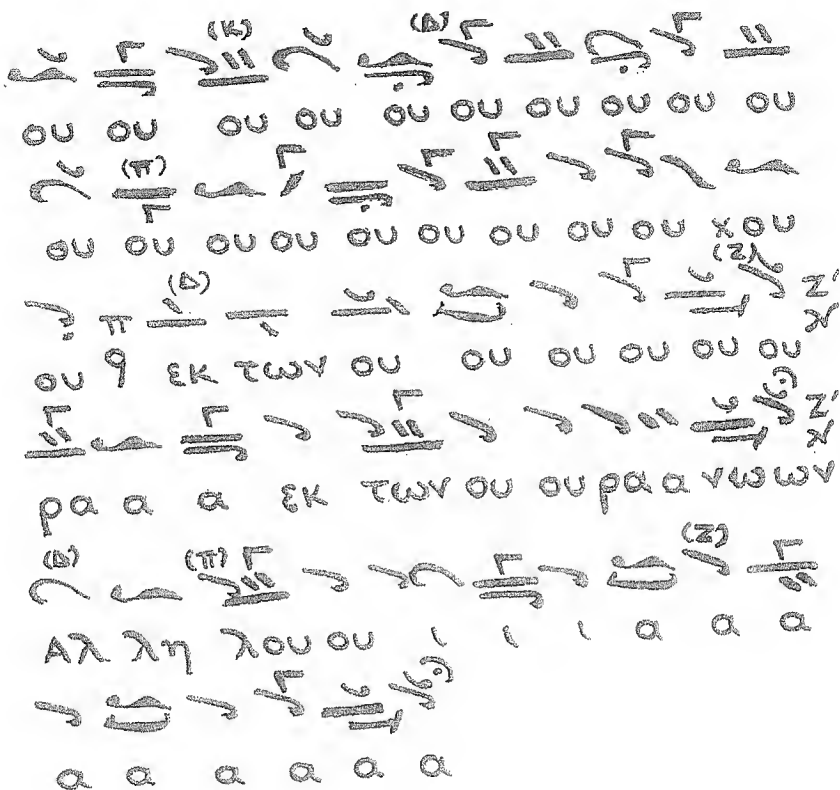 (Κ) (Δ)
ου ου ου ου ου ου ου ου ου ου
(π)
ου ου ου ου ου ου ου ου ου χου
(Δ) (Ζ) Ζ'
ου 9 εκ των ου ου ου ου ου ου
Ζ'
ρα α α εκ των ου ου ρα α νω ων
(Δ) (π) (Ζ)
Αλ λη λου ου ι ι ι α α α
α α α α α α